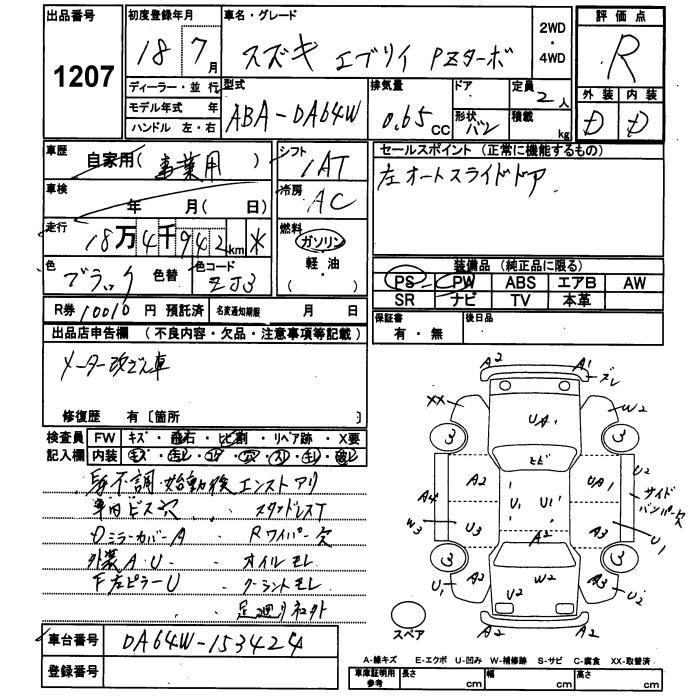 出品番号
1207
初度登録年月
18 7月
車名・グレード
スズキ エブリイ PZターボ
2WD
・
4WD
評価点
R
ディーラー・並行
モデル年式 年
ハンドル 左・右
型式
ABA-DA64W
排気量
0.65cc
ドア
形状 バン
定員
2人
積載
kg
外装 内装
D D
車歴
自家用(事業用)
シフト
IAT
セールスポイント (正常に機能するもの)
左オートスライドドア
車検
年 月( 日)
冷房
AC
走行
18万4千942km
燃料
ガソリン
軽油
( )
色
ブラック 色替
色コード
ZJ3
装備品 (純正品に限る)
PS PW ABS エアB AW
SR ナビ TV 本革
R券 10010 円 預託済
名変通知期限
月 日
保証書
有・無
後日品
出品店申告欄 (不良内容・欠品・注意事項等記載)
メーター改ざん車
修復歴 有〔箇所 〕
検査員
記入欄
FW キズ・飛石・ヒビ割・リペア跡・X要
内装 キズ・汚レ・コゲ・穴・スレ・キレ・破レ
不調 始動後エンストアリ
車内ビス穴 ・スタッドレスT
Dミラーカバー A ・Rワイパー欠
外装 A・U ・オイルモレ
F左ピラーU ・クーラントモレ
・足廻リ
車台番号
DA64W-153424
登録番号
A2 A1 ズレ
XX W2
UA1
3 3
ヒビ
A2 UA1 U2
A4 U1 U1 サイド
バンパー欠
W3 U3 A2 A3 U1
3 3
U1 A2 W2 A3 U2
U2
A2 A2
スペア
A-線キズ E-エクボ U-凹み W-補修跡 S-サビ C-腐食 XX-取替済
車庫証明用
参考
長さ cm
幅 cm
高さ cm